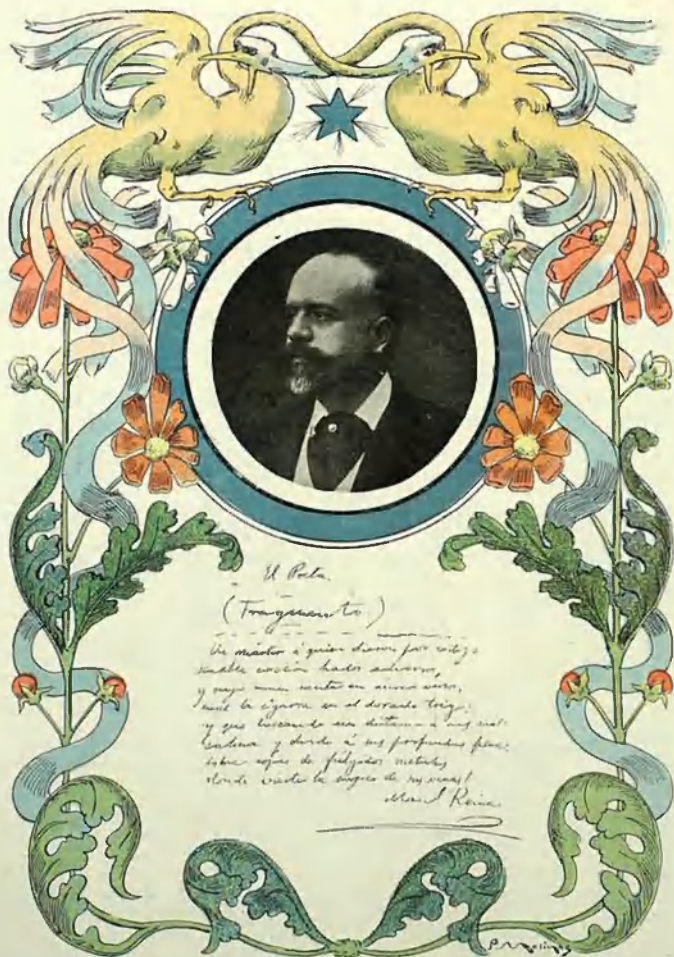 El Poeta.
(Fragmento)
Un mártir á quien dieron por castigo
hados adversos,
y cuyo numen canta en versos,
como la cigarra en el dorado trigo;
y que buscando á sus males
y á sus profundas penas,
labra copas de fúlgidos metales
donde vierte la sangre de sus venas!
Manuel Reina